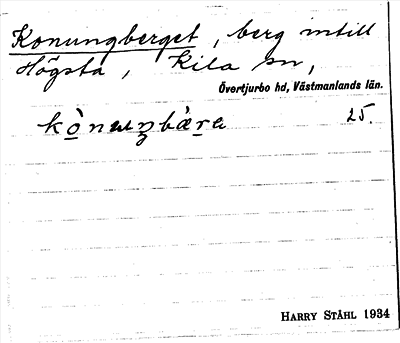 Konungberget, berg intill
Högsta, Kila sn,
Övertjurbo hd, Västmanlands län.
25.
HARRY STÅHL 1934